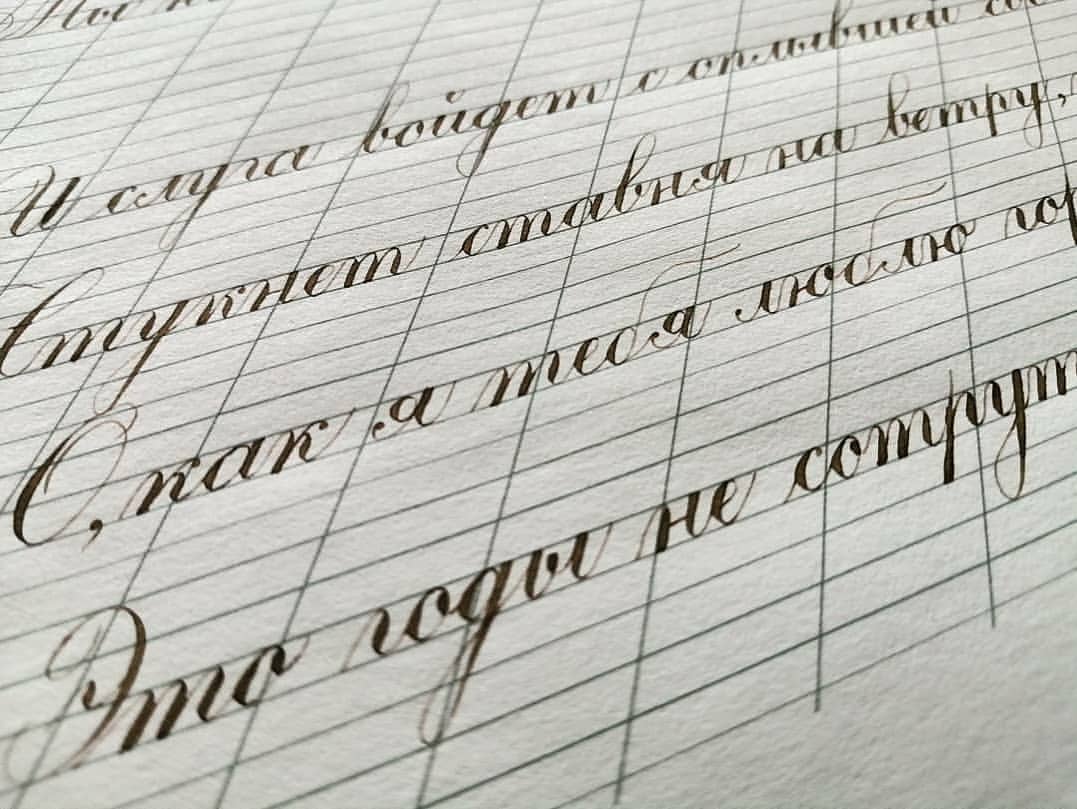 И слуга войдет с оплывшей
Стукнет ставня на ветру,
О, как я тебя люблю
Это годы не сотрут